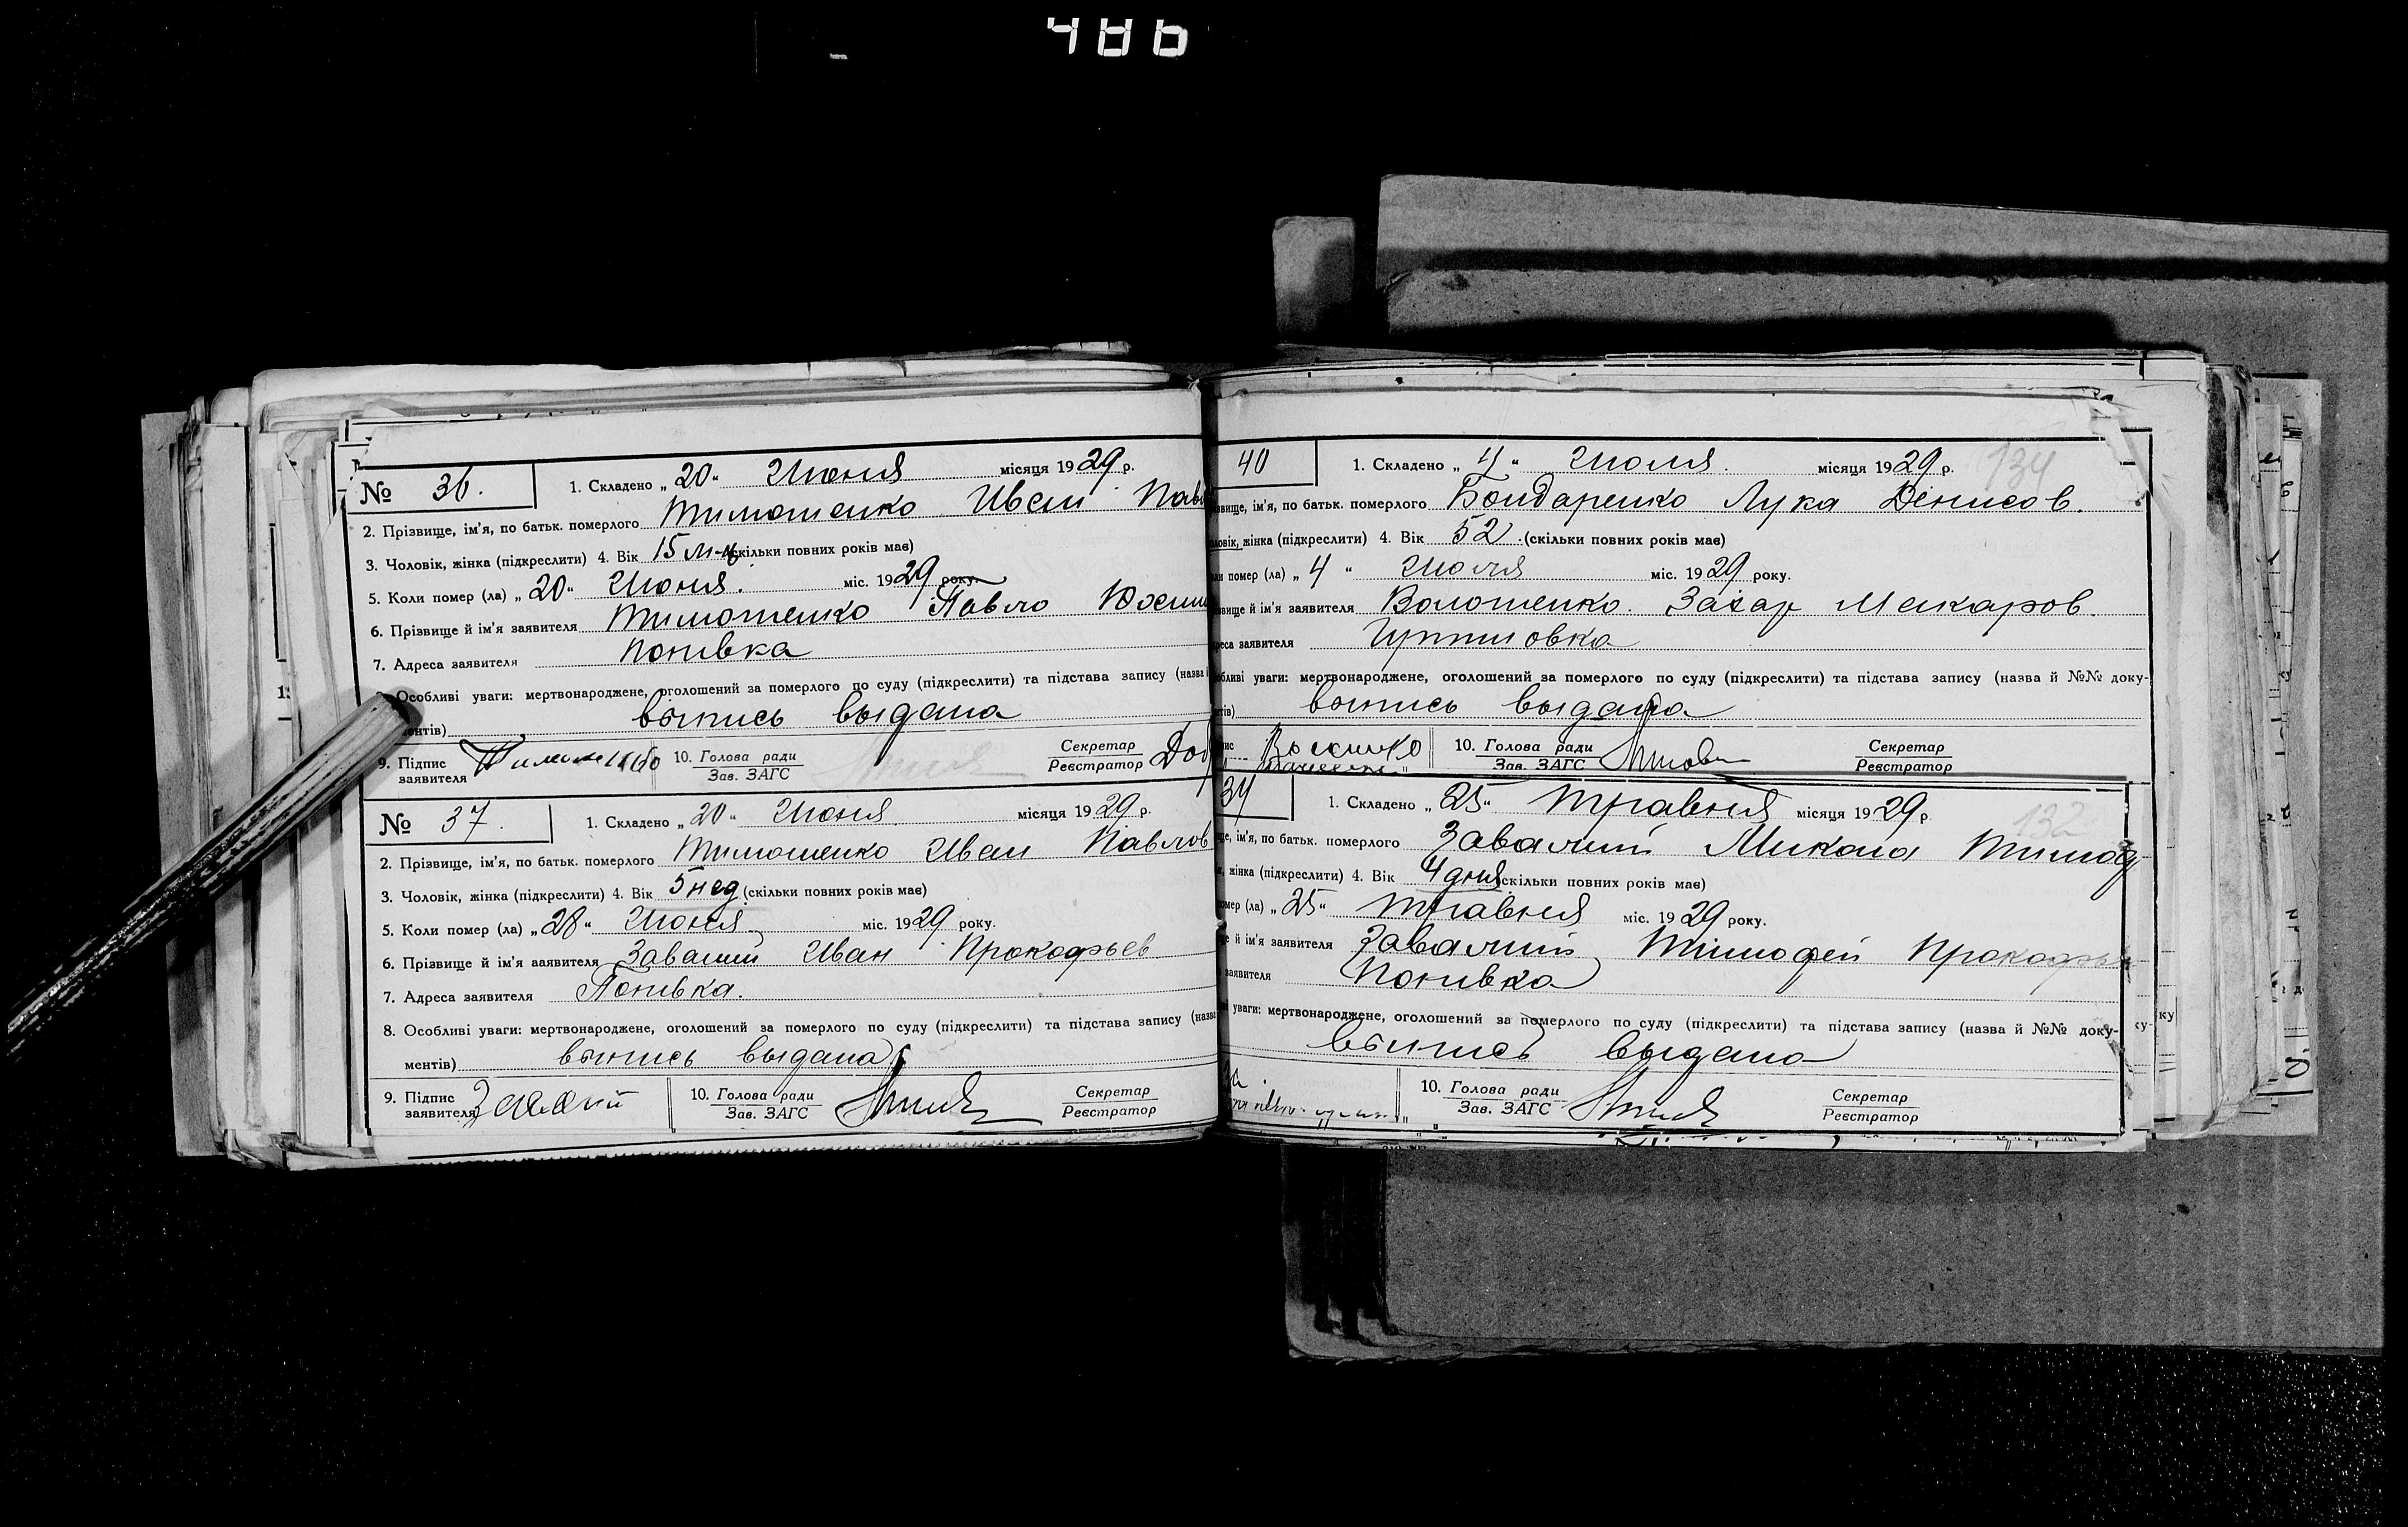 486
№ 36.
1. Складено „ 20 “ Июня місяця 1929 р.
2. Прізвище, ім'я, по батьк. померлого Тимошенко Иван Пав
3. Чоловік, жінка (підкреслити) 4. Вік 15 м-ц (скільки повних років має)
5. Коли помер (ла) „ 20 “ Июня. міс. 1929 року.
6. Прізвище й ім'я заявителя Тимошенко Павло Юхим
7. Адреса заявителя Понивка
Особливі уваги: мертвонароджене, оголошений за померлого по суду (підкреслити) та підстава запису (назва
ментів) выпись выдана
9. Підпис заявителя Тимошенко 10. Голова ради Зав. ЗАГС Секретар Реєстратор
№ 37.
1. Складено „ 20 “ Июня. місяця 1929 р.
2. Прізвище, ім'я, по батьк. померлого Тимошенко Иван Павлов
3. Чоловік, жінка (підкреслити) 4. Вік 5 нед (скільки повних років має)
5. Коли помер (ла) „ 28 “ Июня міс. 1929 року.
6. Прізвище й ім'я заявителя Завалий Иван Прокофьев
7. Адреса заявителя Понивка.
8. Особливі уваги: мертвонароджене, оголошений за померлого по суду (підкреслити) та підстава запису (назва
ментів) выпись выдана
9. Підпис заявителя 10. Голова ради Зав. ЗАГС Секретар Реєстратор
40
1. Складено „ 4 “ Июля. місяця 1929 р. 134
звище, ім'я, по батьк. померлого Бондаренко Лука Денисов.
ловік, жінка (підкреслити) 4. Вік 52 (скільки повних років має)
ли помер (ла) „ 4 “ Июля міс. 1929 року.
звище й ім'я заявителя Волошенко. Захар Макаров
реса заявителя
обливі уваги: мертвонароджене, оголошений за померлого по суду (підкреслити) та підстава запису (назва й №№ доку-
тів) выпись выдана
10. Голова ради Зав. ЗАГС Секретар Реєстратор
34
1. Складено „ 25 “ травня місяця 1929 р. 132
ще, ім'я, по батьк. померлого Завалий Микола Тимоф
жінка (підкреслити) 4. Вік 4 дня (скільки повних років має)
омер (ла) „ 25 “ травня міс. 1929 року.
е й ім'я заявителя Завалий Тимофей Прокофьев
заявителя Понивка
уваги: мертвонароджене, оголошений за померлого по суду (підкреслити) та підстава запису (назва й №№ доку-
выпись выдана
10. Голова ради Зав. ЗАГС Секретар Реєстратор